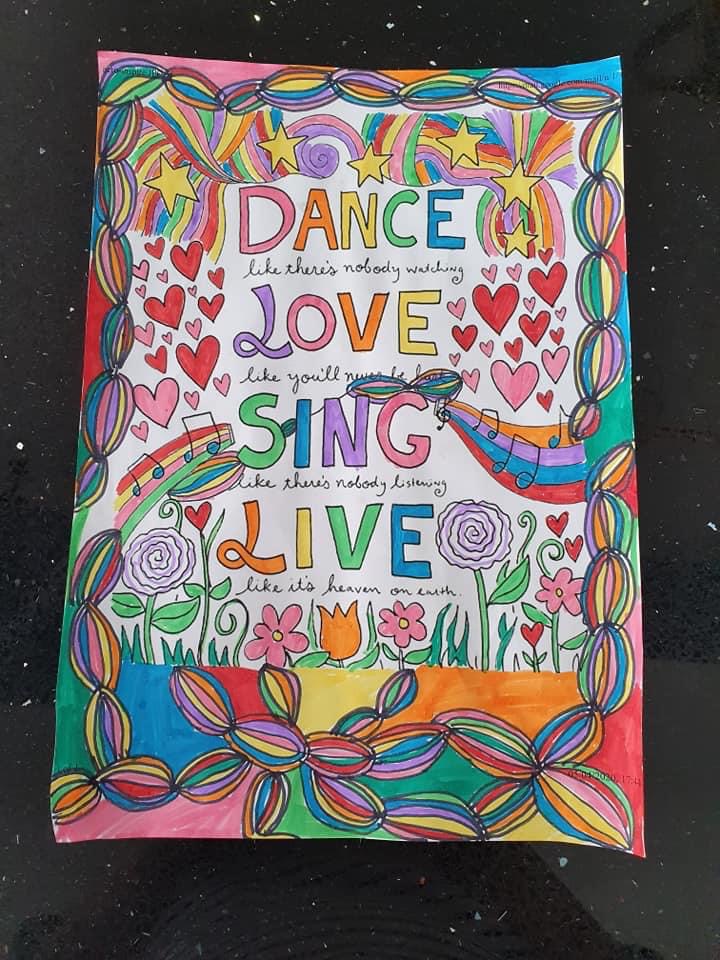 DANCE
like there's nobody watching
LOVE
like you'll never be
SING
like there's nobody listening
LIVE
like it's heaven on earth.
17:4